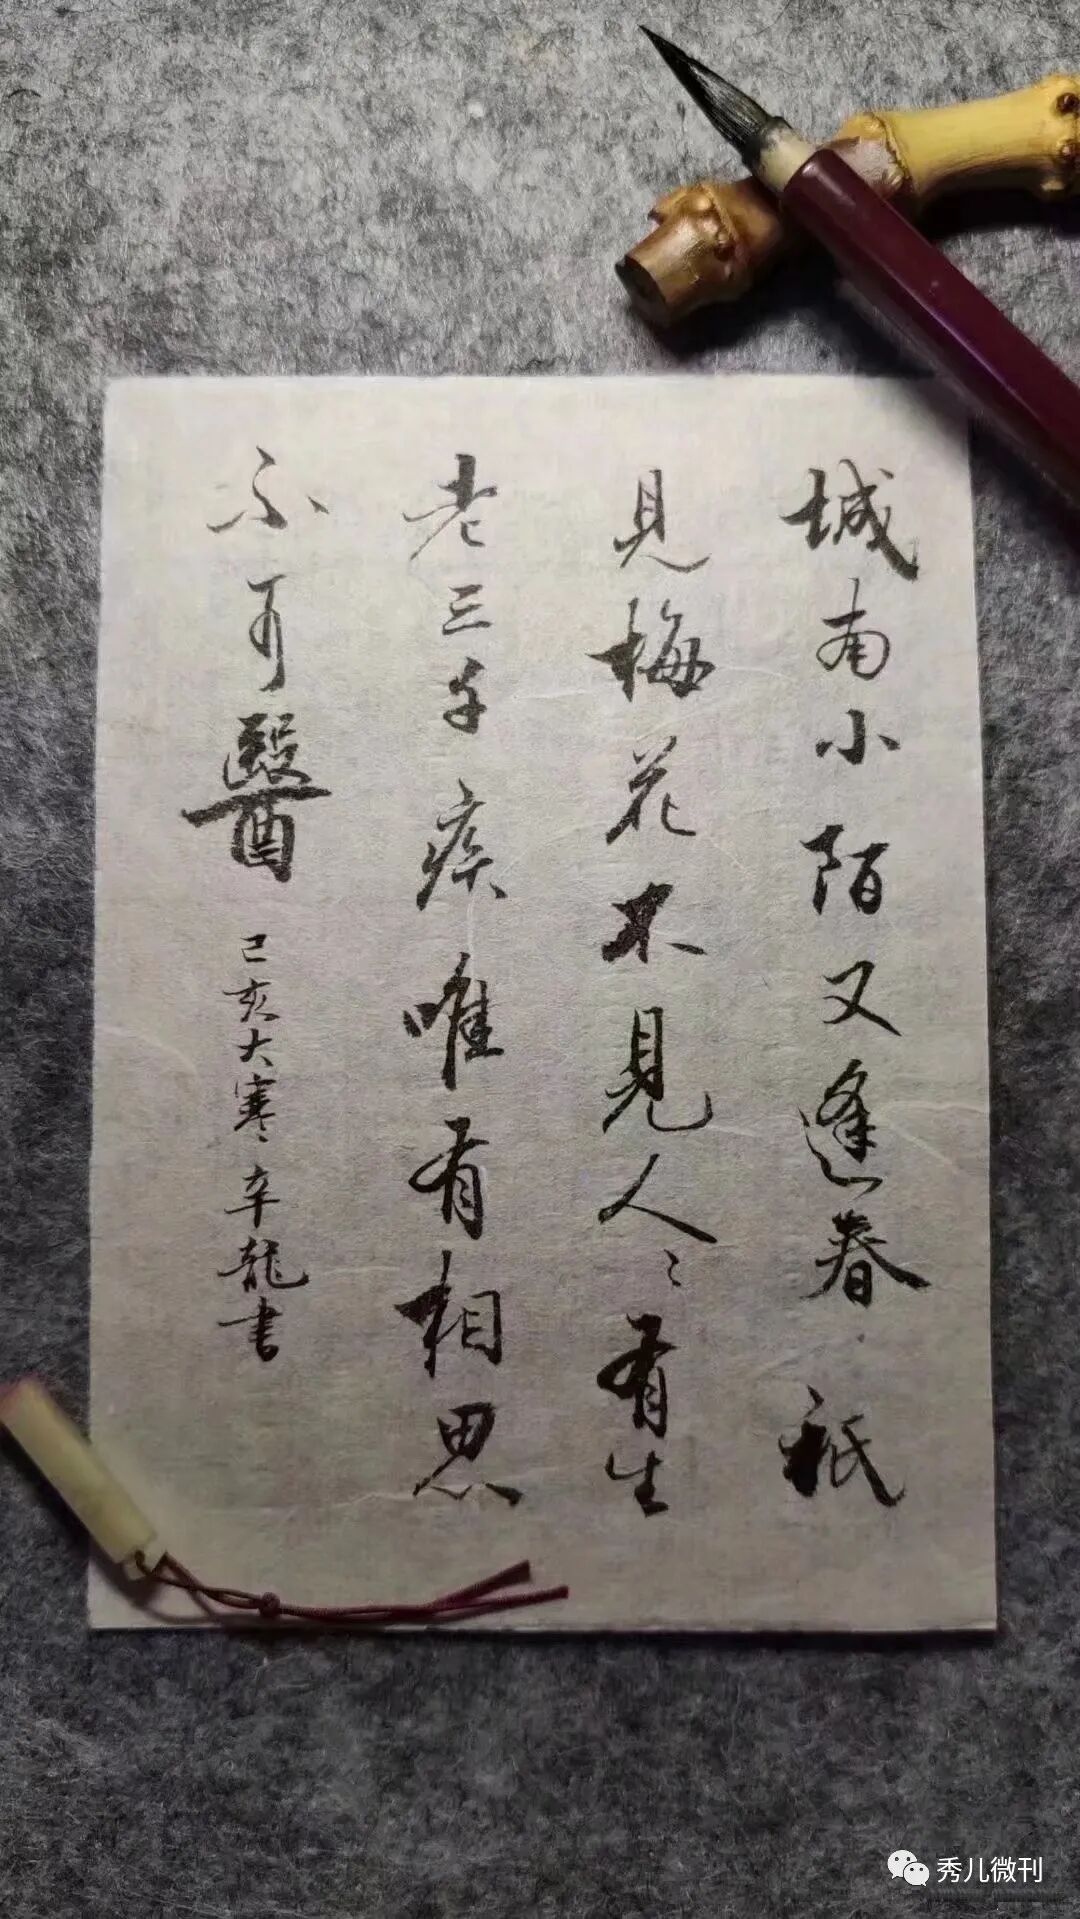 城南小陌又逢春祇
見梅花不見人〻有生
老三千疾唯有相思
不可醫 己亥大寒辛龍書
秀儿微刊